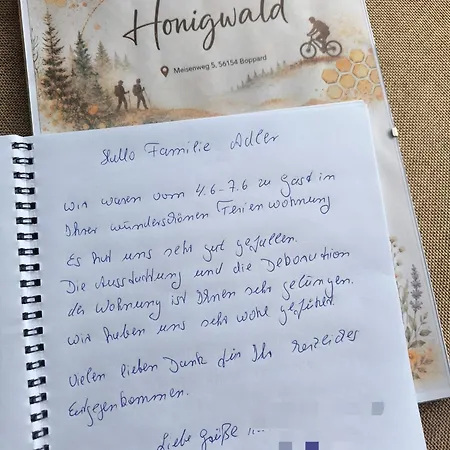 Honigwald
Meisenweg 5, 56154 Boppard
Hallo Familie Adler
wir waren vom 4.6-7.6 zu gast in
Ihrer wunderschönen Ferienwohnung
Es hat uns sehr gut gefallen.
Die Ausstattung und die Dekoration
der Wohnung ist Ihnen sehr gelungen.
wir haben uns sehr wohl gefühlt.
Vielen lieben Dank für Ihr herzliches
Entgegenkommen.
Liebe grüße ....